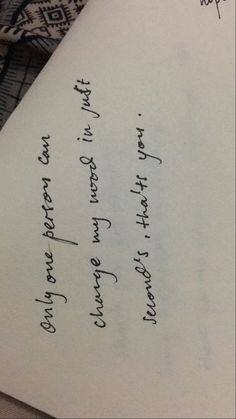 Only one person can
change my mood in just
second's, that's you.